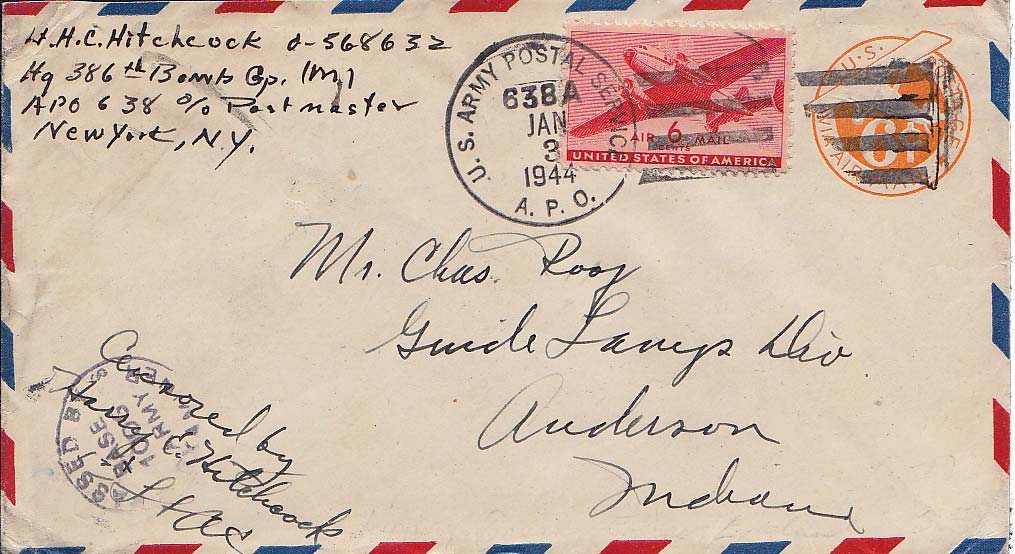 H.C. Hitchcock O-568632
Hq 386th Bomb Gp. (M)
APO 638 c/o Postmaster
New York, N.Y.
U.S. ARMY POSTAL SERVICE
638A
JAN
3
1944
A. P. O.
AIR 6 MAIL
CENTS
UNITED STATES OF AMERICA
U.S. POSTAGE
6¢
VIA AIR MAIL
Mr. Chas. Roof
Guide Lamp Div
Anderson
Indiana
Censored by
Harry C. Hitchcock
BASE
ARMY